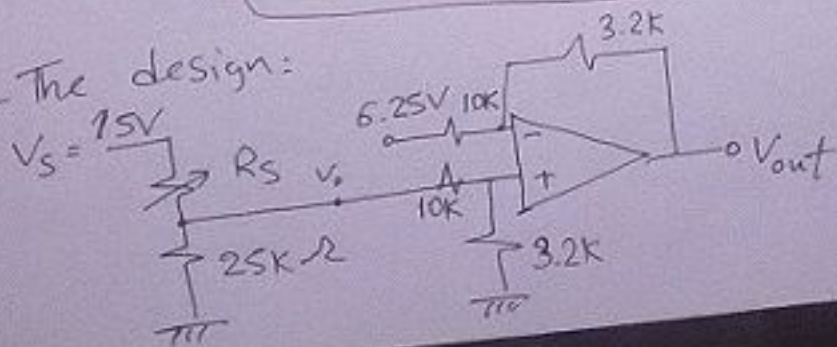 The design:
Vs = 15V
Rs
25K Ω
V.
6.25V 10K
10K
3.2K
3.2K
-
+
Vout